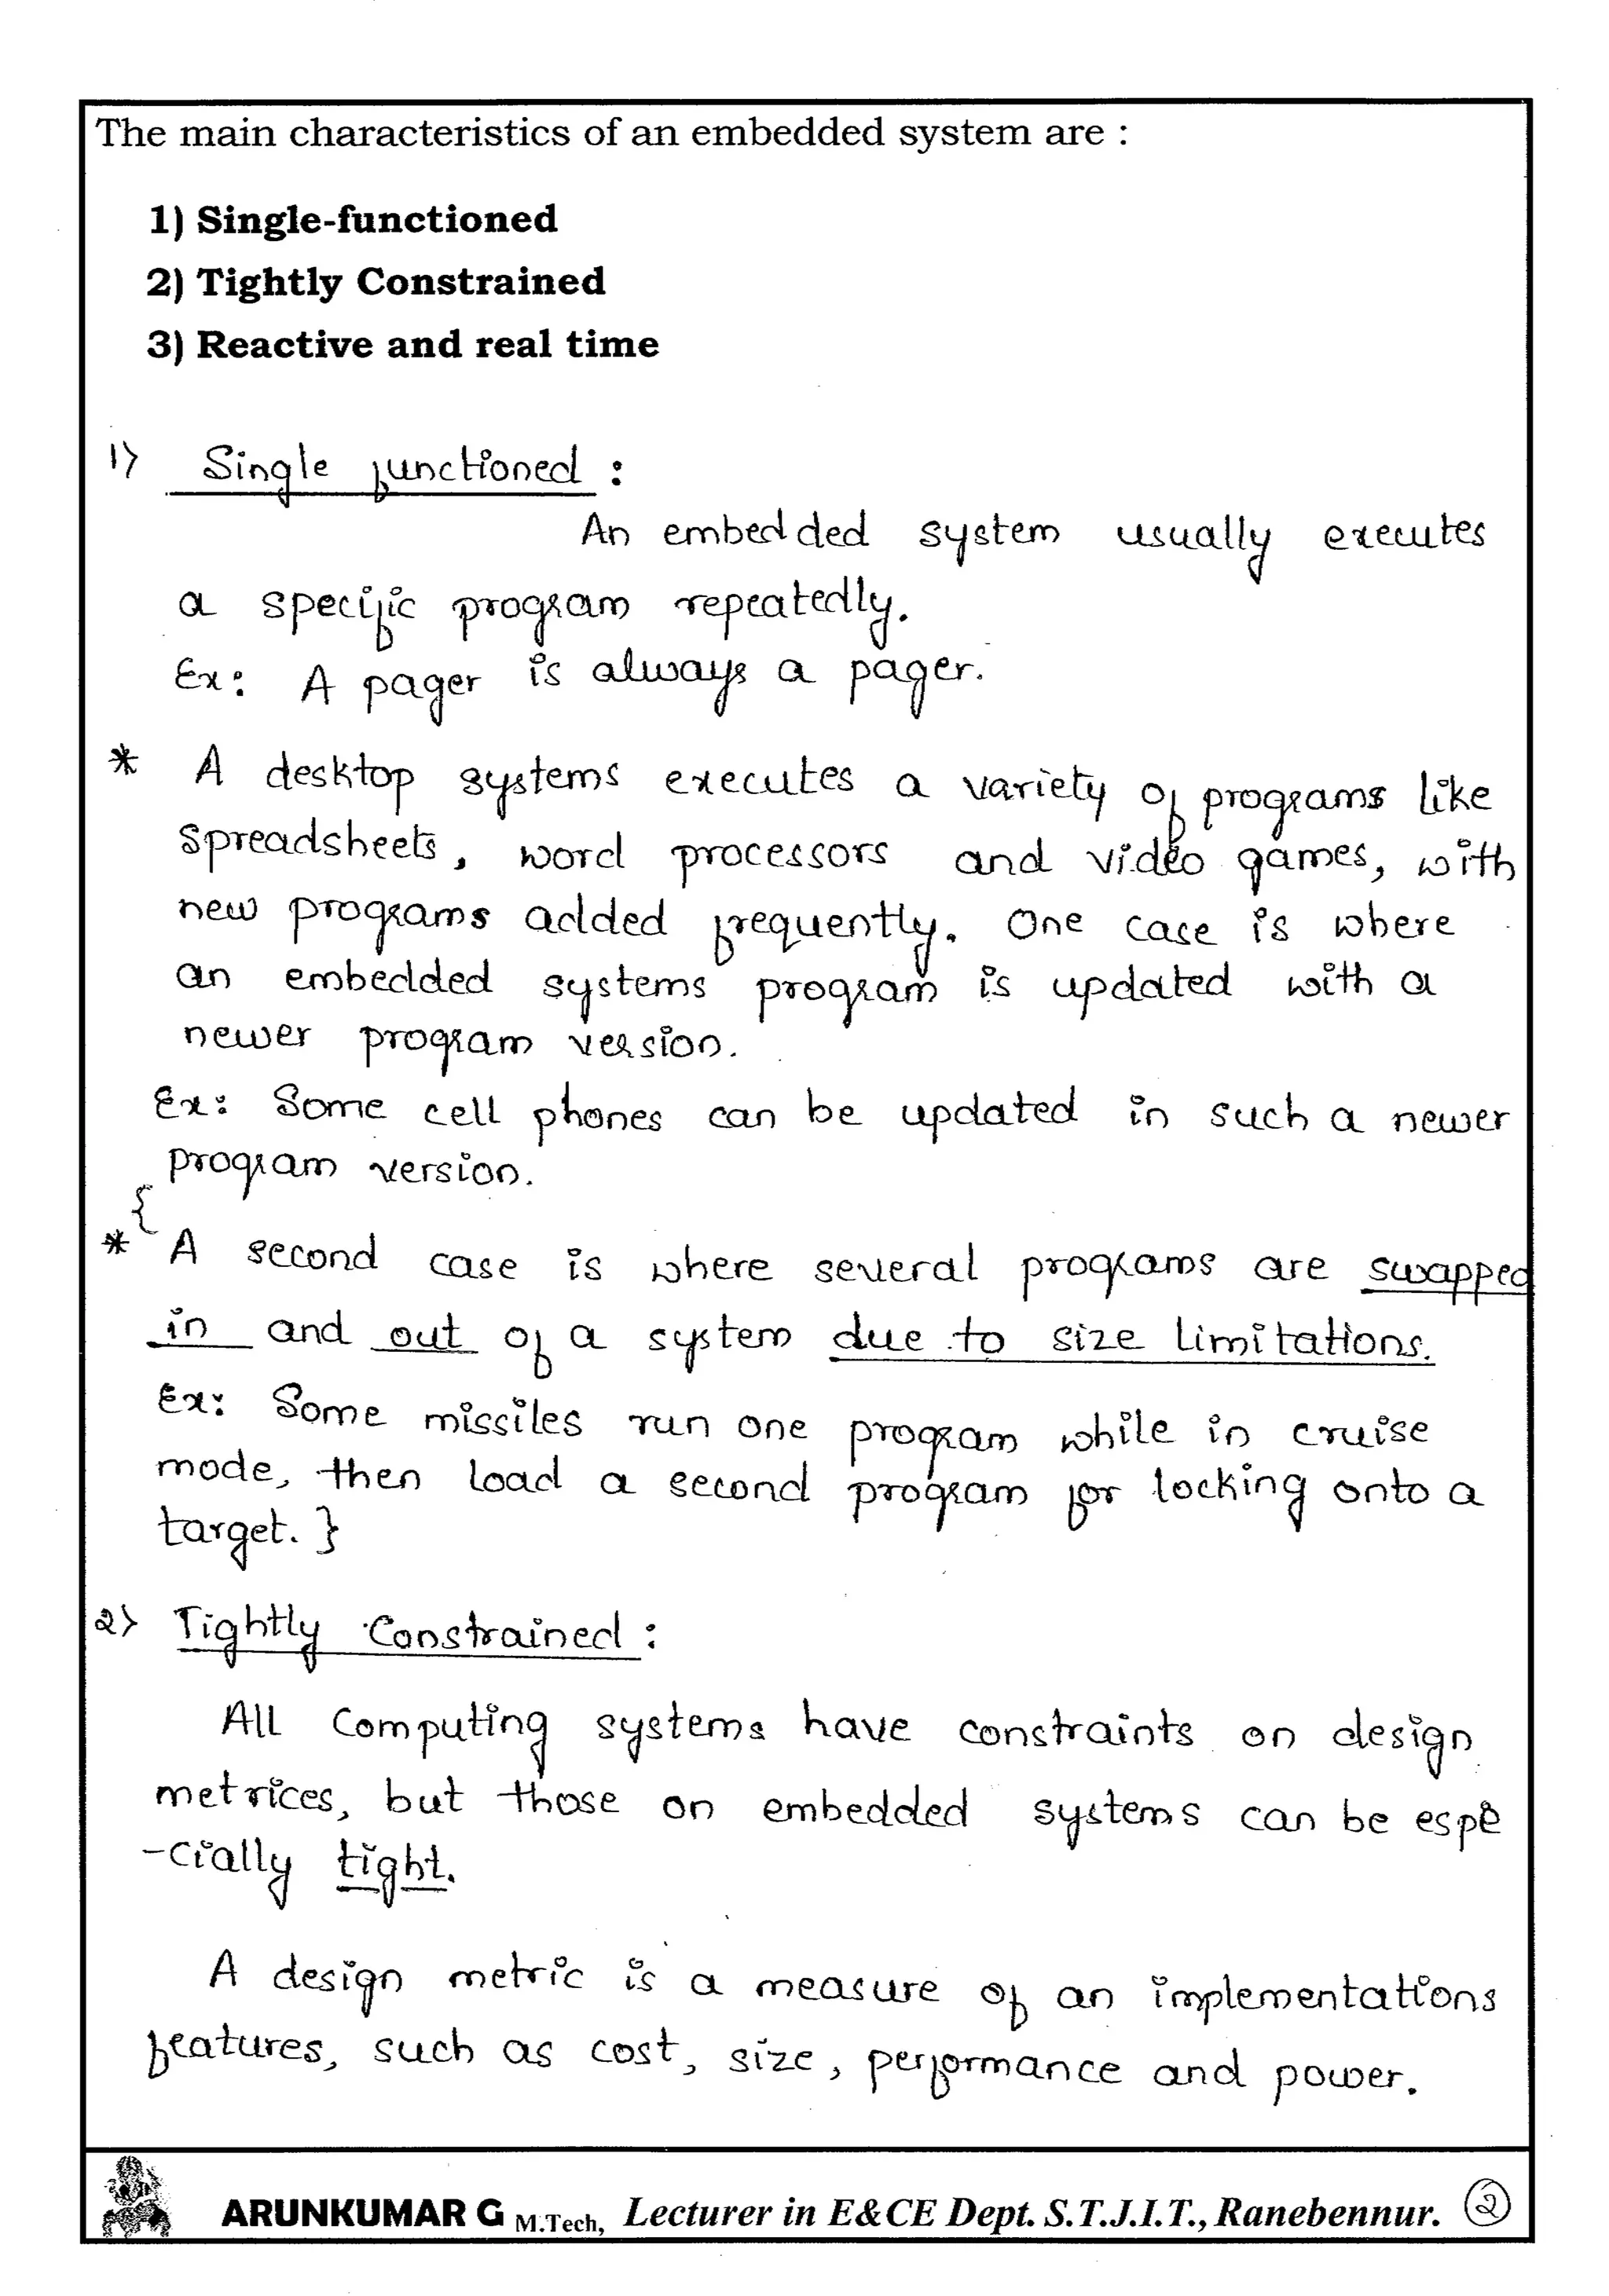 The main characteristics of an embedded system are :
1) Single-functioned
2) Tightly Constrained
3) Reactive and real time
1) Single functioned :
An embedded system usually executes
a specific program repeatedly.
Ex: A pager is always a pager.
* A desktop systems executes a variety of programs like
spreadsheets, word processors and video games, with
new programs added frequently. One case is where
an embedded systems program is updated with a
newer program version.
Ex: Some cell phones can be updated in such a newer
program version.
{
* A second case is where several programs are swapped
in and out of a system due to size limitations.
Ex: Some missiles run one program while in cruise
mode, then load a second program for locking onto a
target. }
2) Tightly Constrained :
All Computing systems have constraints on design
metrices, but those on embedded systems can be espe
-cially tight.
A design metric is a measure of an implementations
features, such as cost, size, performance and power.
ARUNKUMAR G M.Tech, Lecturer in E&CE Dept. S.T.J.I.T., Ranebennur. 2